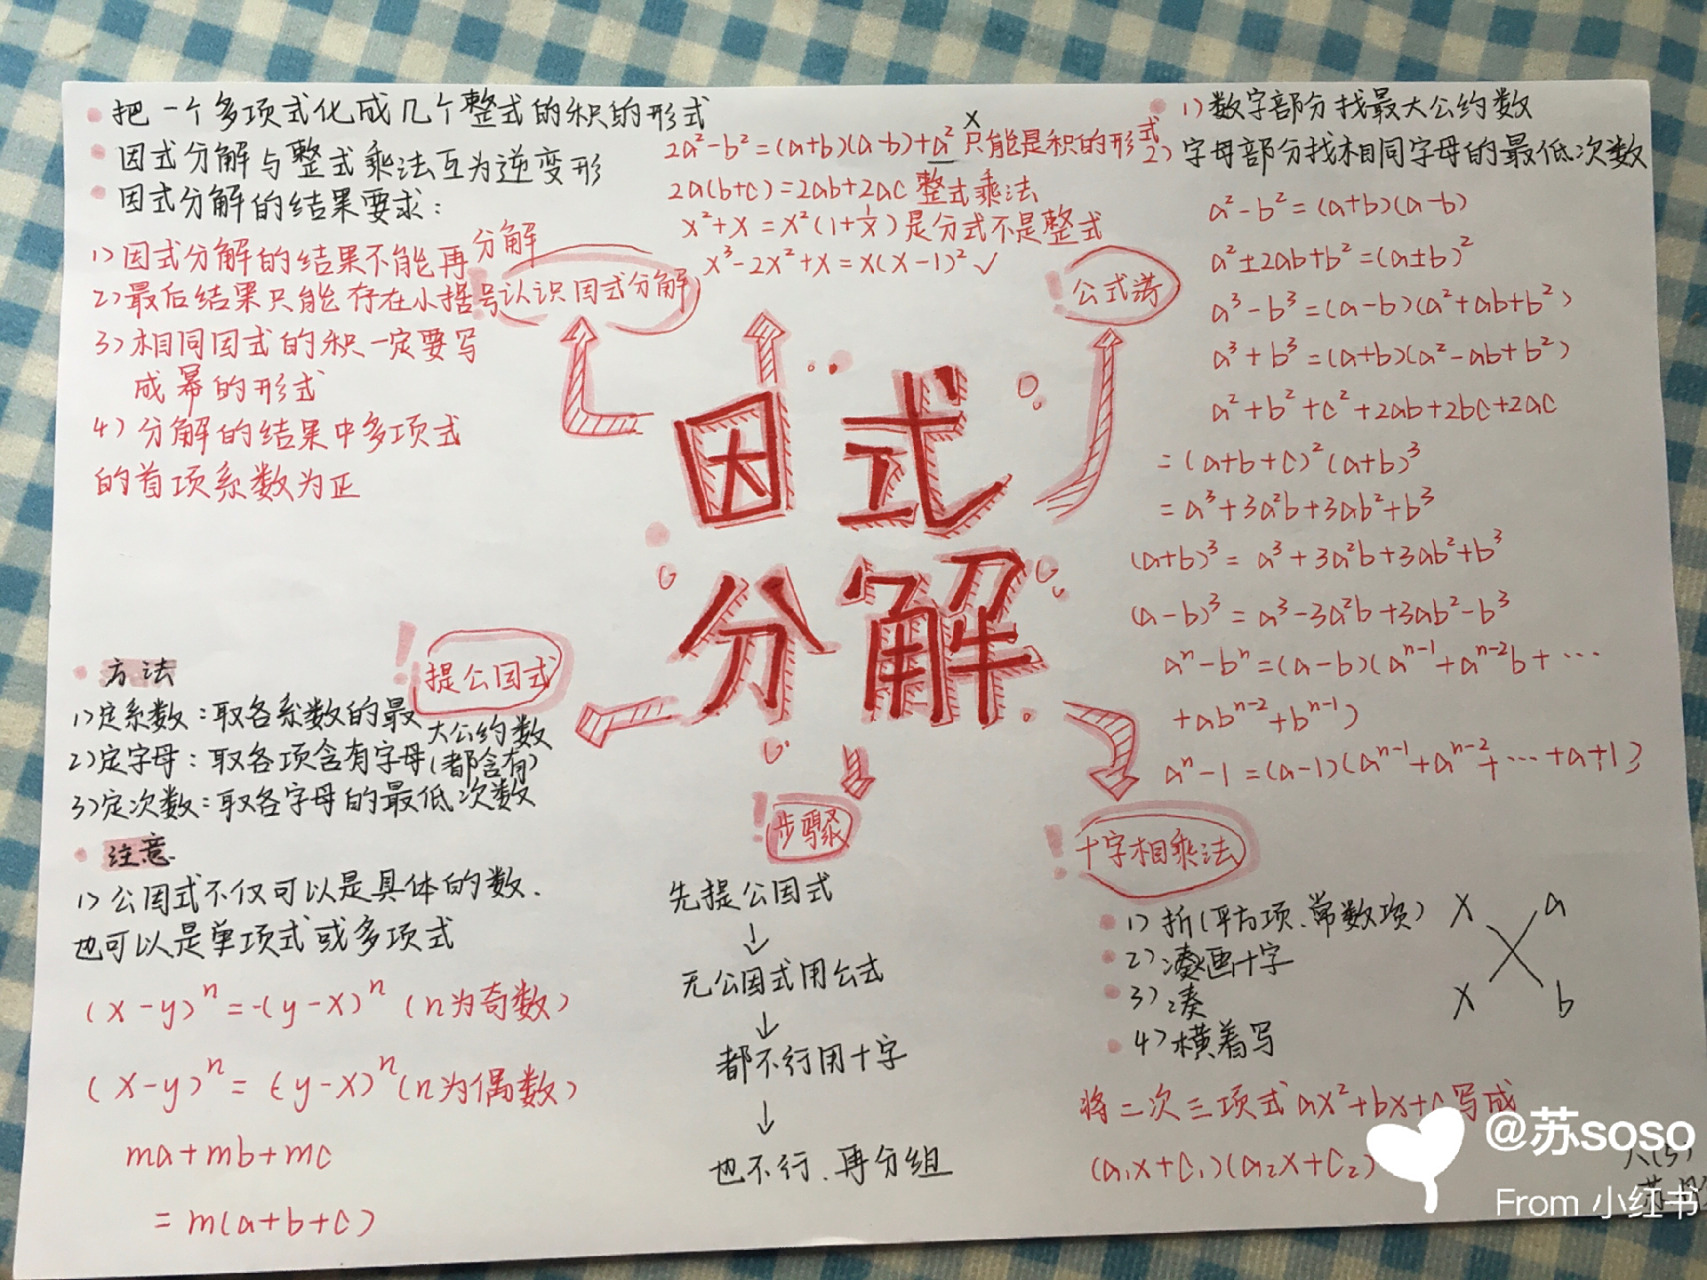 把一个多项式化成几个整式的积的形式
因式分解与整式乘法互为逆变形
因式分解的结果要求:
1)因式分解的结果不能再分解
2)最后结果只能存在小括号
3)相同因式的积一定要写
成幂的形式
4)分解的结果中多项式
的首项系数为正
认识因式分解
2a²-b²=(a+b)(a-b)+a² 只能是积的形式
x
2a(b+c)=2ab+2ac 整式乘法
x²+x=x²(1+1/x)是分式不是整式
x³-2x²+x=x(x-1)²✓
公式法
1)数字部分找最大公约数
2)字母部分找相同字母的最低次数
a²-b²=(a+b)(a-b)
a²±2ab+b²=(a±b)²
a³-b³=(a-b)(a²+ab+b²)
a³+b³=(a+b)(a²-ab+b²)
a²+b²+c²+2ab+2bc+2ac
=(a+b+c)²(a+b)³
=a³+3a²b+3ab²+b³
(a+b)³=a³+3a²b+3ab²+b³
(a-b)³=a³-3a²b+3ab²-b³
aⁿ-bⁿ=(a-b)(aⁿ⁻¹+aⁿ⁻²b+…
+abⁿ⁻²+bⁿ⁻¹)
aⁿ-1=(a-1)(aⁿ⁻¹+aⁿ⁻²+…+a+1)
因式
分解
提公因式
方法
1)定系数:取各系数的最大公约数
2)定字母:取各项含有字母(都含有)
3)定次数:取各字母的最低次数
注意
1)公因式不仅可以是具体的数.
也可以是单项式或多项式
(x-y)ⁿ=-(y-x)ⁿ (n为奇数)
(x-y)ⁿ=(y-x)ⁿ(n为偶数)
ma+mb+mc
=m(a+b+c)
步骤
先提公因式
↓
无公因式用公式
↓
都不行用十字
↓
也不行.再分组
十字相乘法
1)折(平方项.常数项)
2)凑画十字
3)凑
4)横着写
x a
x b
将二次三项式ax²+bx+c写成
(a₁x+c₁)(a₂x+c₂)
八(5)
@苏soso
From 小红书